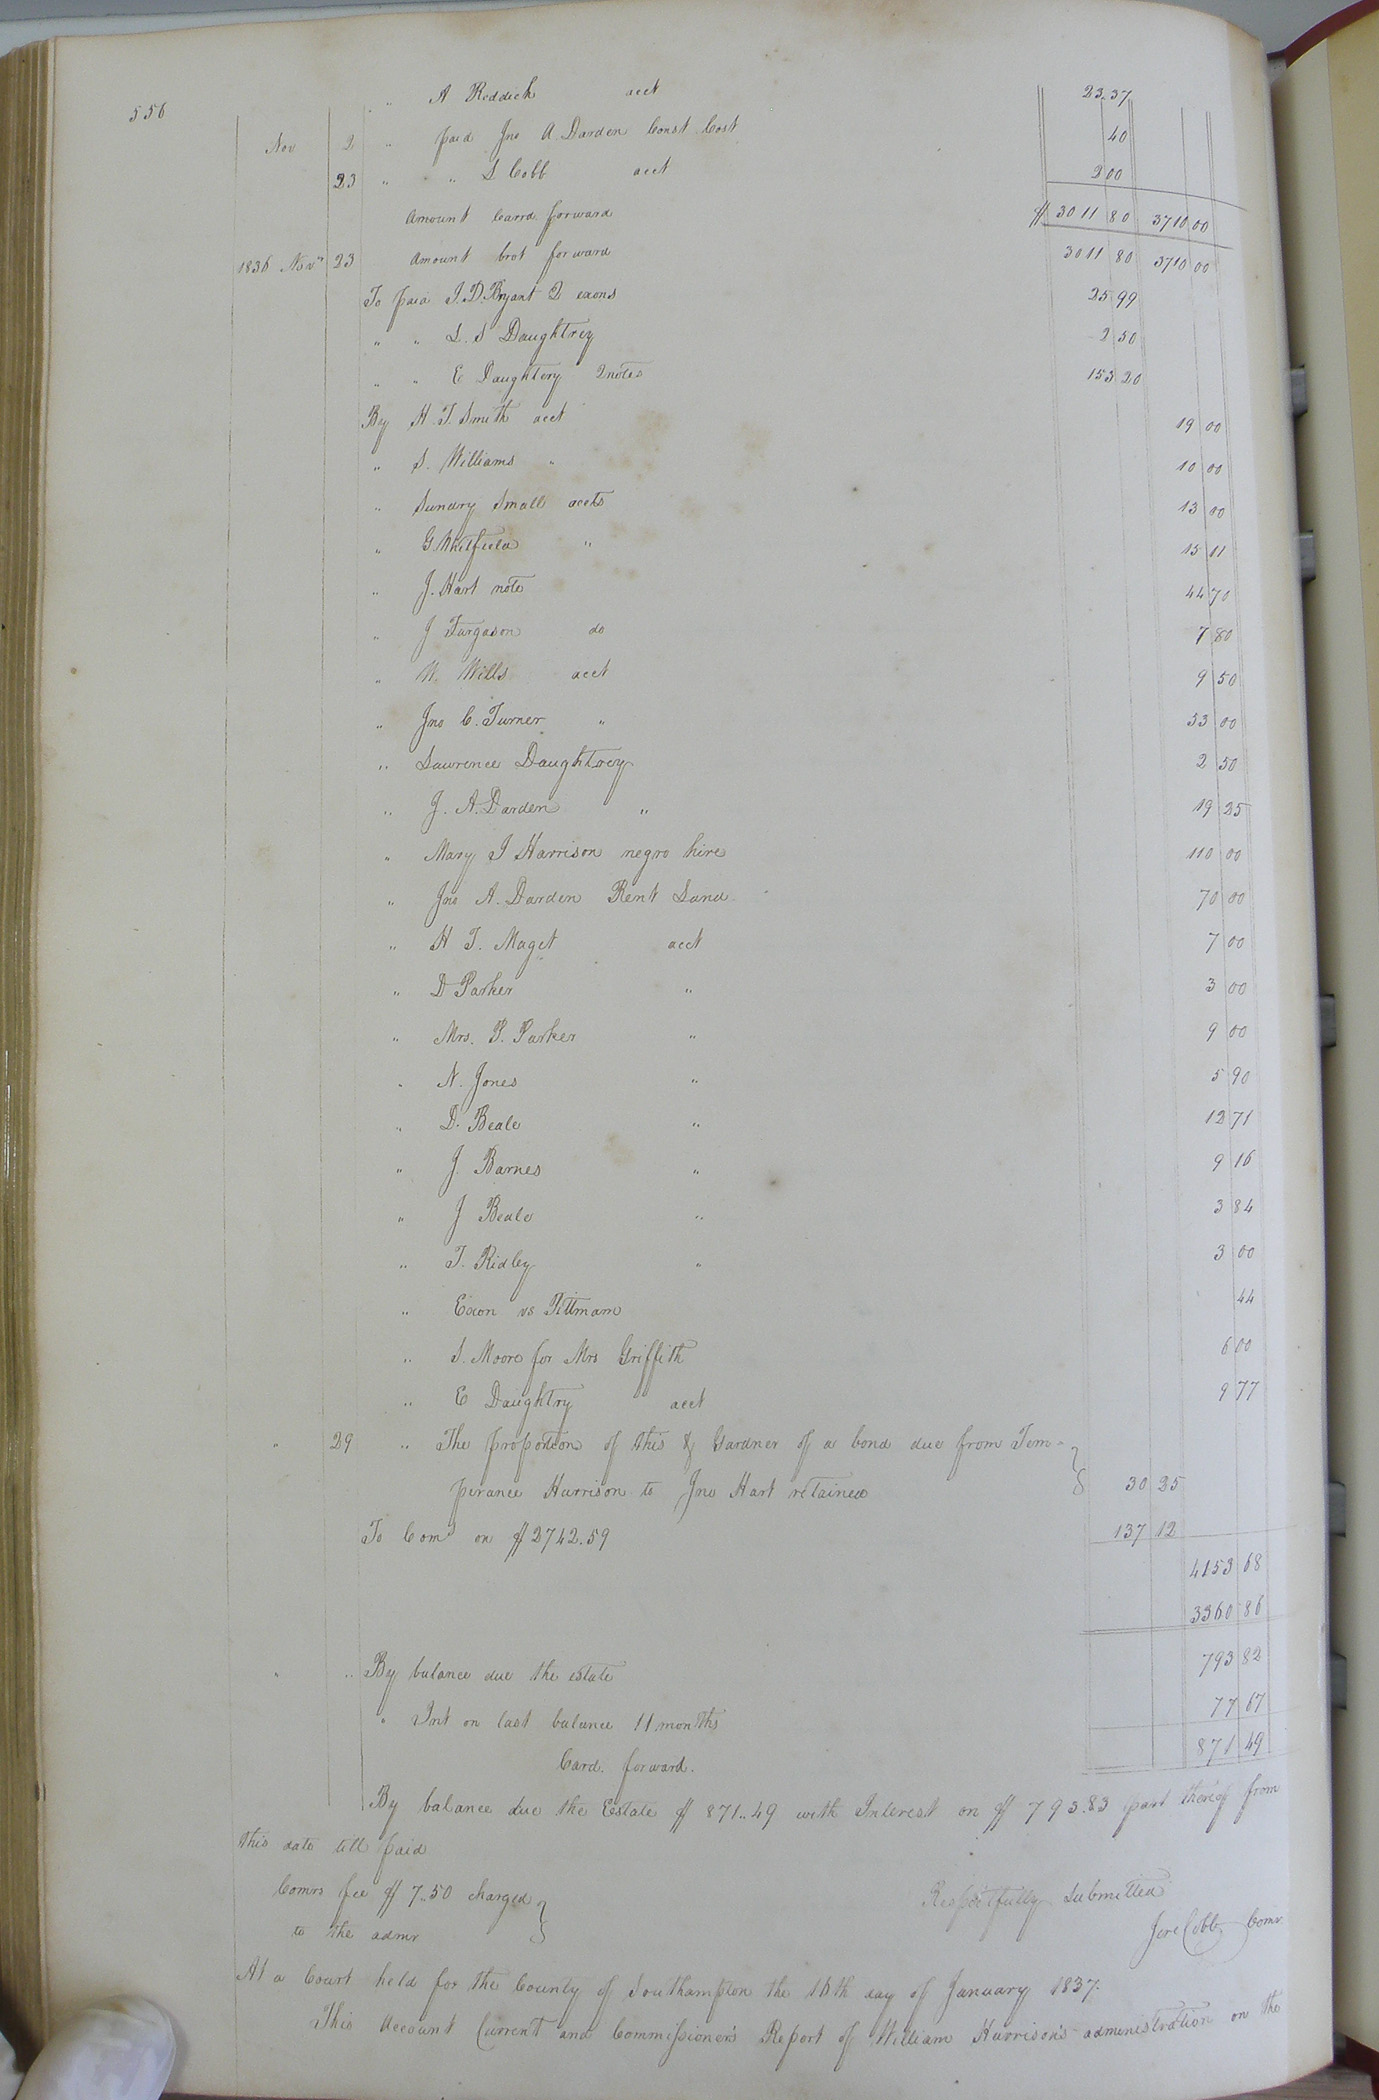 556
" A Reddick acct 23.37
Nov 2 " paid Jno A. Darden Const. Cost 40
23 " " S Cobb acct 2 00
Amount Carrd. forward $ 3011 80 3710 00
1836 Novr 23 Amount brot forward 3011 80 3710 00
To paid J. D. Bryant 2 exons 25 99
" " L. S Daughtrey 2 50
" " E Daughtery 2 notes 153 20
By H. T. Smith acct 19 00
" S. Williams " 10 00
" Sundry Small accts 13 00
" G Whitfield " 15 11
" J. Hart note 44 70
" J Furgason do 7 80
" W. Wills acct 9 50
" Jno C. Turner " 33 00
" Lawrence Daughtrey 2 50
" J. A. Darden " 19 25
" Mary J Harrison negro hire 110 00
" Jno A. Darden Rent Land 70 00
" H T. Maget acct 7 00
" D Parker " 3 00
" Mrs. P. Parker " 9 00
" N. Jones " 5 90
" D. Beale " 12 71
" J. Barnes " 9 16
" J Beale " 3 84
" T. Ridley " 3 00
" Exon vs Pittman 44
" S. Moore for Mrs Griffith 6 00
" E Daughtry acct 9 77
" 29 " The proportion of this & Gardner of a bond due from Tem-
perance Harrison to Jno Hart retained 30 25
To Com on $2742.59 137 12
4153 68
3360 86
" " By balance due the estate 793 82
" Int on last balance 11 months 77 67
Card. forward. 871 49
By balance due the Eestate $ 871..49 with Interest on $ 793.83 part thereof from
this date till paid
Comrs fee $ 7..50 charged
to the admr
Respectfully Submitted
Jere Cobb Comr
At a Court held for the County of Southampton the 16th day of January 1837.
This Account Current and Commissioner's Report of William Harrison's administration on the